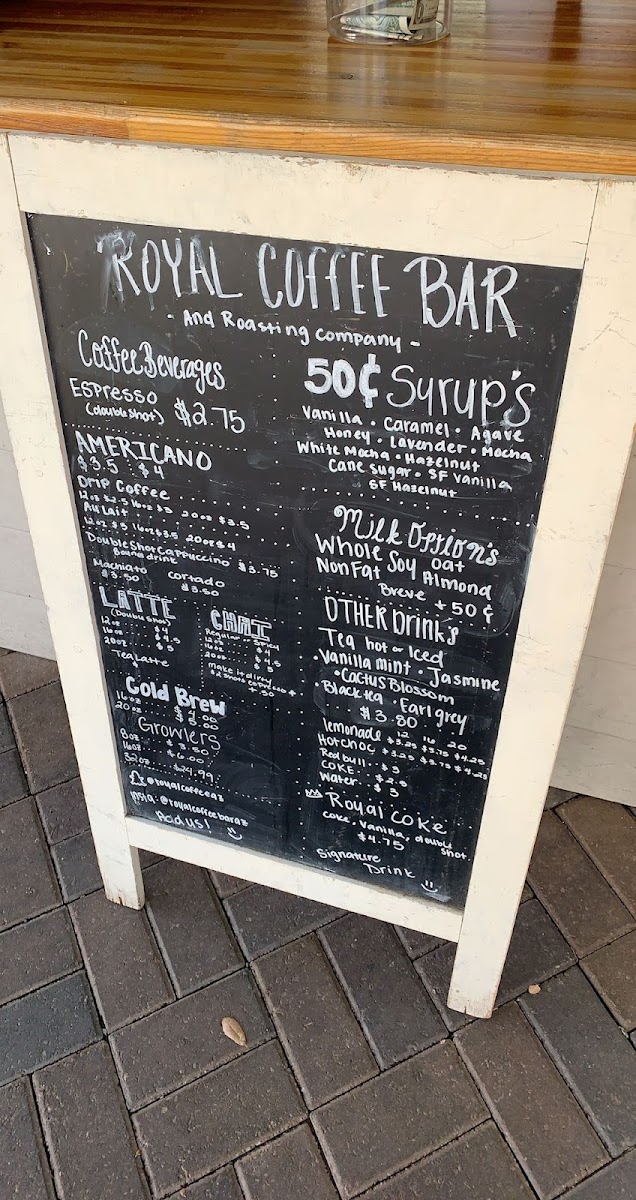 ROYAL COFFEE BAR
- And Roasting company -
Coffee Beverages
ESPresso
(double shot) $2.75
AMERICANO
$3.5 $4
Drip Coffee
12oz $2.5 16oz $3 20oz $3.5
Au Lait
12oz $3 16oz $3.5 20oz $4
Double Shot Cappuccino $3.75
Machiato cortado
$3.50 $3.50
LATTE
(Double Shot)
12oz $4
16oz $4.5
20oz $5
Tea Latte
CHAI
Regular Spicy
12oz $4
16oz $4.5
20oz $5
make it dirty
Cold Brew
16oz $4.00
20oz $5.00
Growlers
8oz $3.50
16oz $6.00
32oz $24.99
@royalcoffeeaz
insta: @royalcoffeebaraz
Add us!
50¢ Syrup's
Vanilla • Caramel • Agave
Honey • Lavender • Mocha
White Mocha • Hazelnut
Cane Sugar • SF Vanilla
SF Hazelnut
Milk Option's
Whole Soy oat
NonFat Almond
Breve + 50¢
OTHER Drink's
Tea hot or Iced
• Vanilla mint • Jasmine
• Cactus Blossom
Black tea • Earl grey
$3.80
12 16 20
lemonade $3.25 $3.75 $4.25
Hot choc $3.25 $3.75 $4.25
Red bull $3
COKE
Water $3
Royal coke
coke, vanilla, double shot
$4.75
Signature
Drink